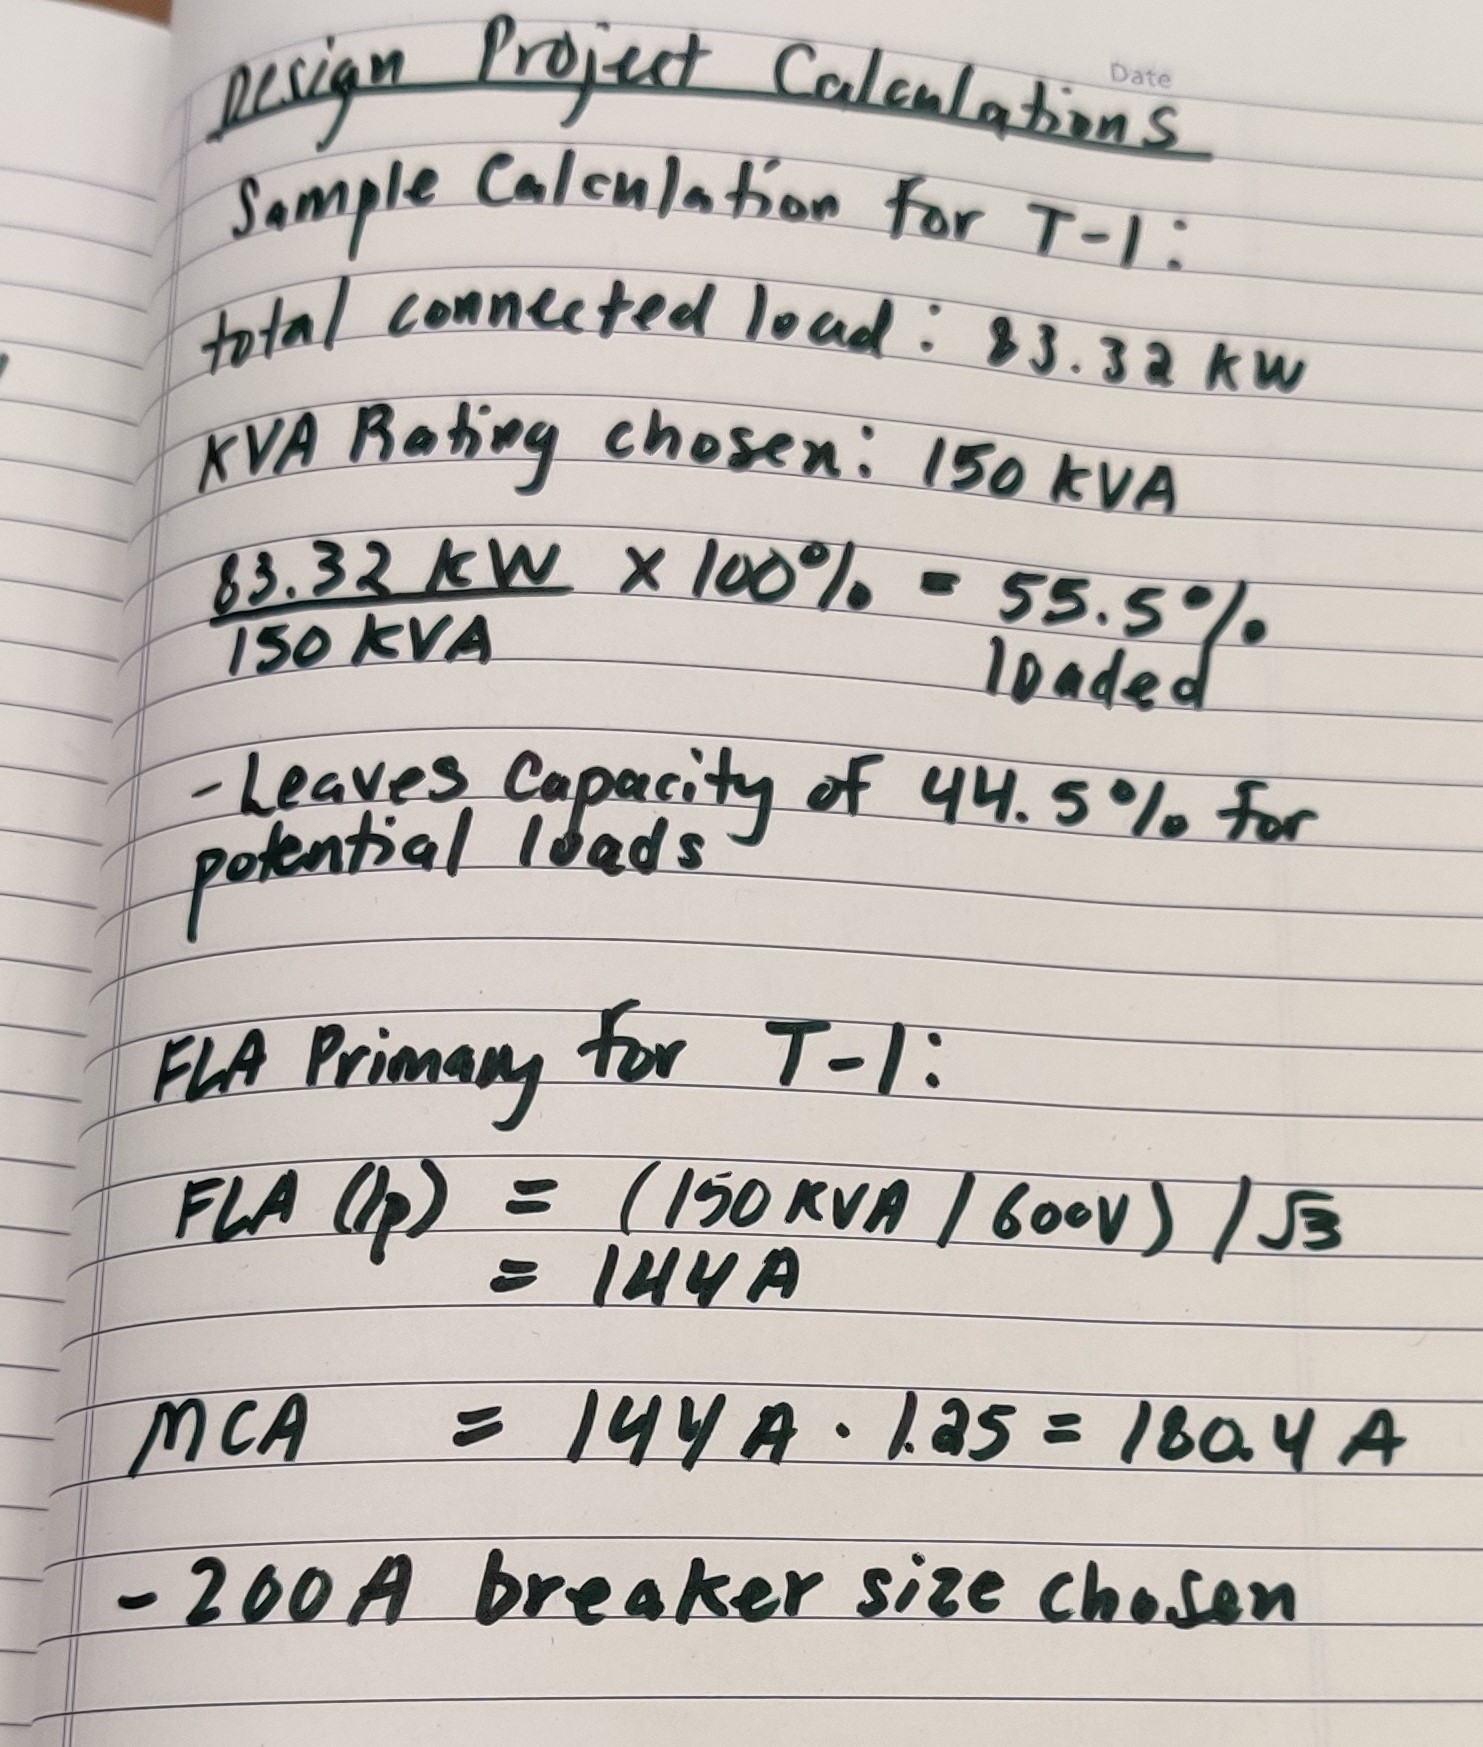 Date
Design Project Calculations
Sample Calculation for T-1:
total connected load: 83.32 KW
KVA Rating chosen: 150 KVA
83.32 KW x 100% = 55.5%
150 KVA loaded
- Leaves Capacity of 44.5% for
potential loads
FLA Primary for T-1:
FLA (Ip) = (150 KVA / 600V) / √3
= 144 A
MCA = 144 A · 1.25 = 180.4 A
- 200 A breaker size chosen